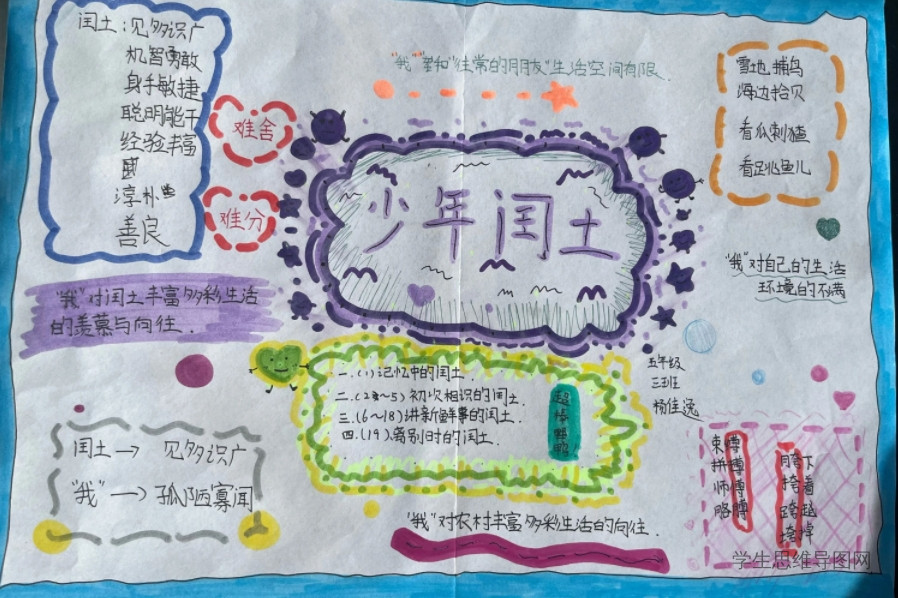 闰土:见多识广
机智勇敢
身手敏捷
聪明能干
经验丰富
淳朴
善良
难舍
难分
"我"和"往常的朋友"生活空间有限.
雪地捕鸟
海边拾贝
看瓜刺猹
看跳鱼儿
少年闰土
"我"对自己的生活
环境的不满
"我"对闰土丰富多彩生活
的羡慕与向往.
一.(1)记忆中的闰土.
二.(2~5)初次相识的闰土.
三.(6~18)讲新鲜事的闰土.
四.(19)离别时的闰土.
五年级
三班
杨佳逸
闰土→ 见多识广
"我"→孤陋寡闻
"我"对农村丰富多彩生活的向往.
束缚
拼搏
师傅
胳膊
胯下
挎着
跨越
垮掉
学生思维导图网